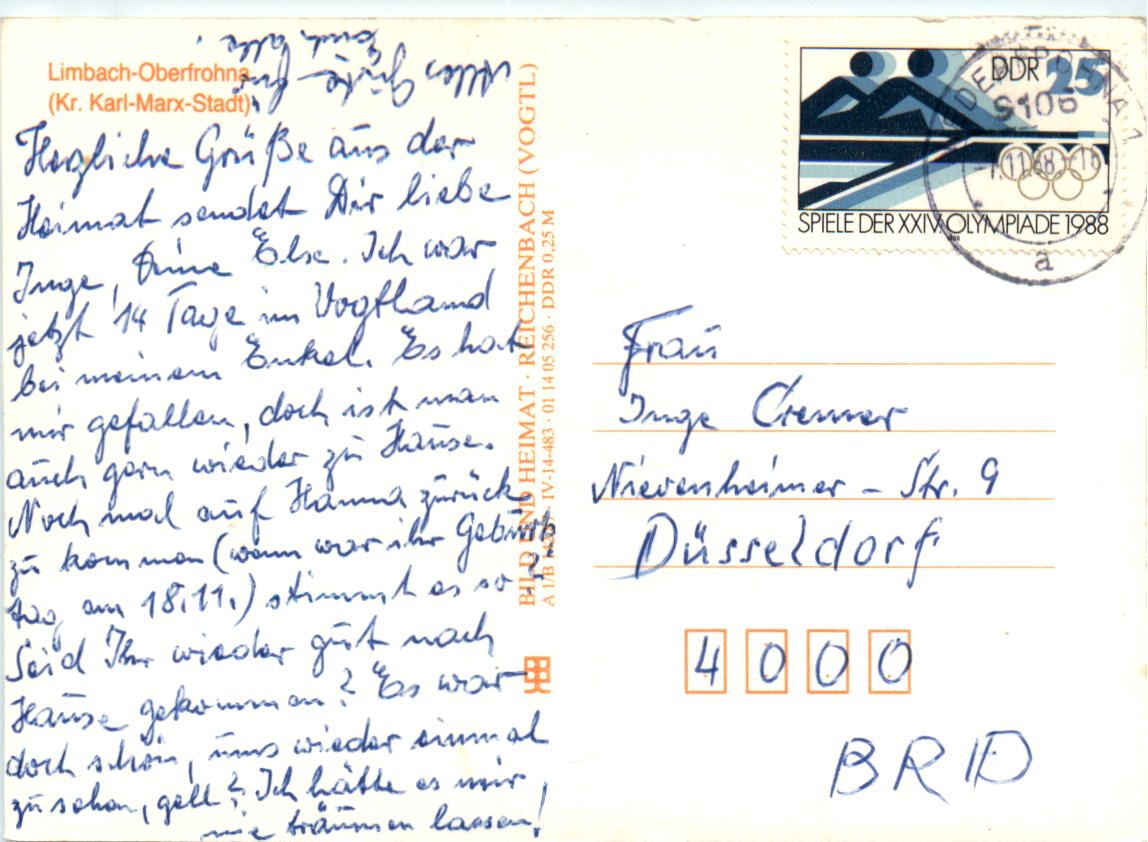 Limbach-Oberfrohna
(Kr. Karl-Marx-Stadt)
Herzliche Grüße aus der
Heimat sendet Dir liebe
Inge, Deine Else. Ich war
jetzt 14 Tage im Vogtland
bei meinem Enkel. Es hat
mir gefallen, doch ist man
auch gern wieder zu Hause.
Noch mal auf Hanna zurück
zu kommen (wann war ihr Geburts
tag am 18.11.) stimmt es so?
Seid Ihr wieder gut nach
Hause gekommen? Es war
doch schön, uns wieder einmal
zu sehen, gell? Ich hätte es mir
nie träumen lassen!
Alles Gute für
Euch alle.
BILD UND HEIMAT · REICHENBACH (VOGTL)
A 1/B IV-14-483 · 01 14 05 256 · DDR 0,25 M
DDR 25
SPIELE DER XXIV. OLYMPIADE 1988
OBERFROHNA 1
9106
11.88-16
a
Frau
Inge Cremer
Nievenheimer - Str. 9
Düsseldorf
4000
BRD